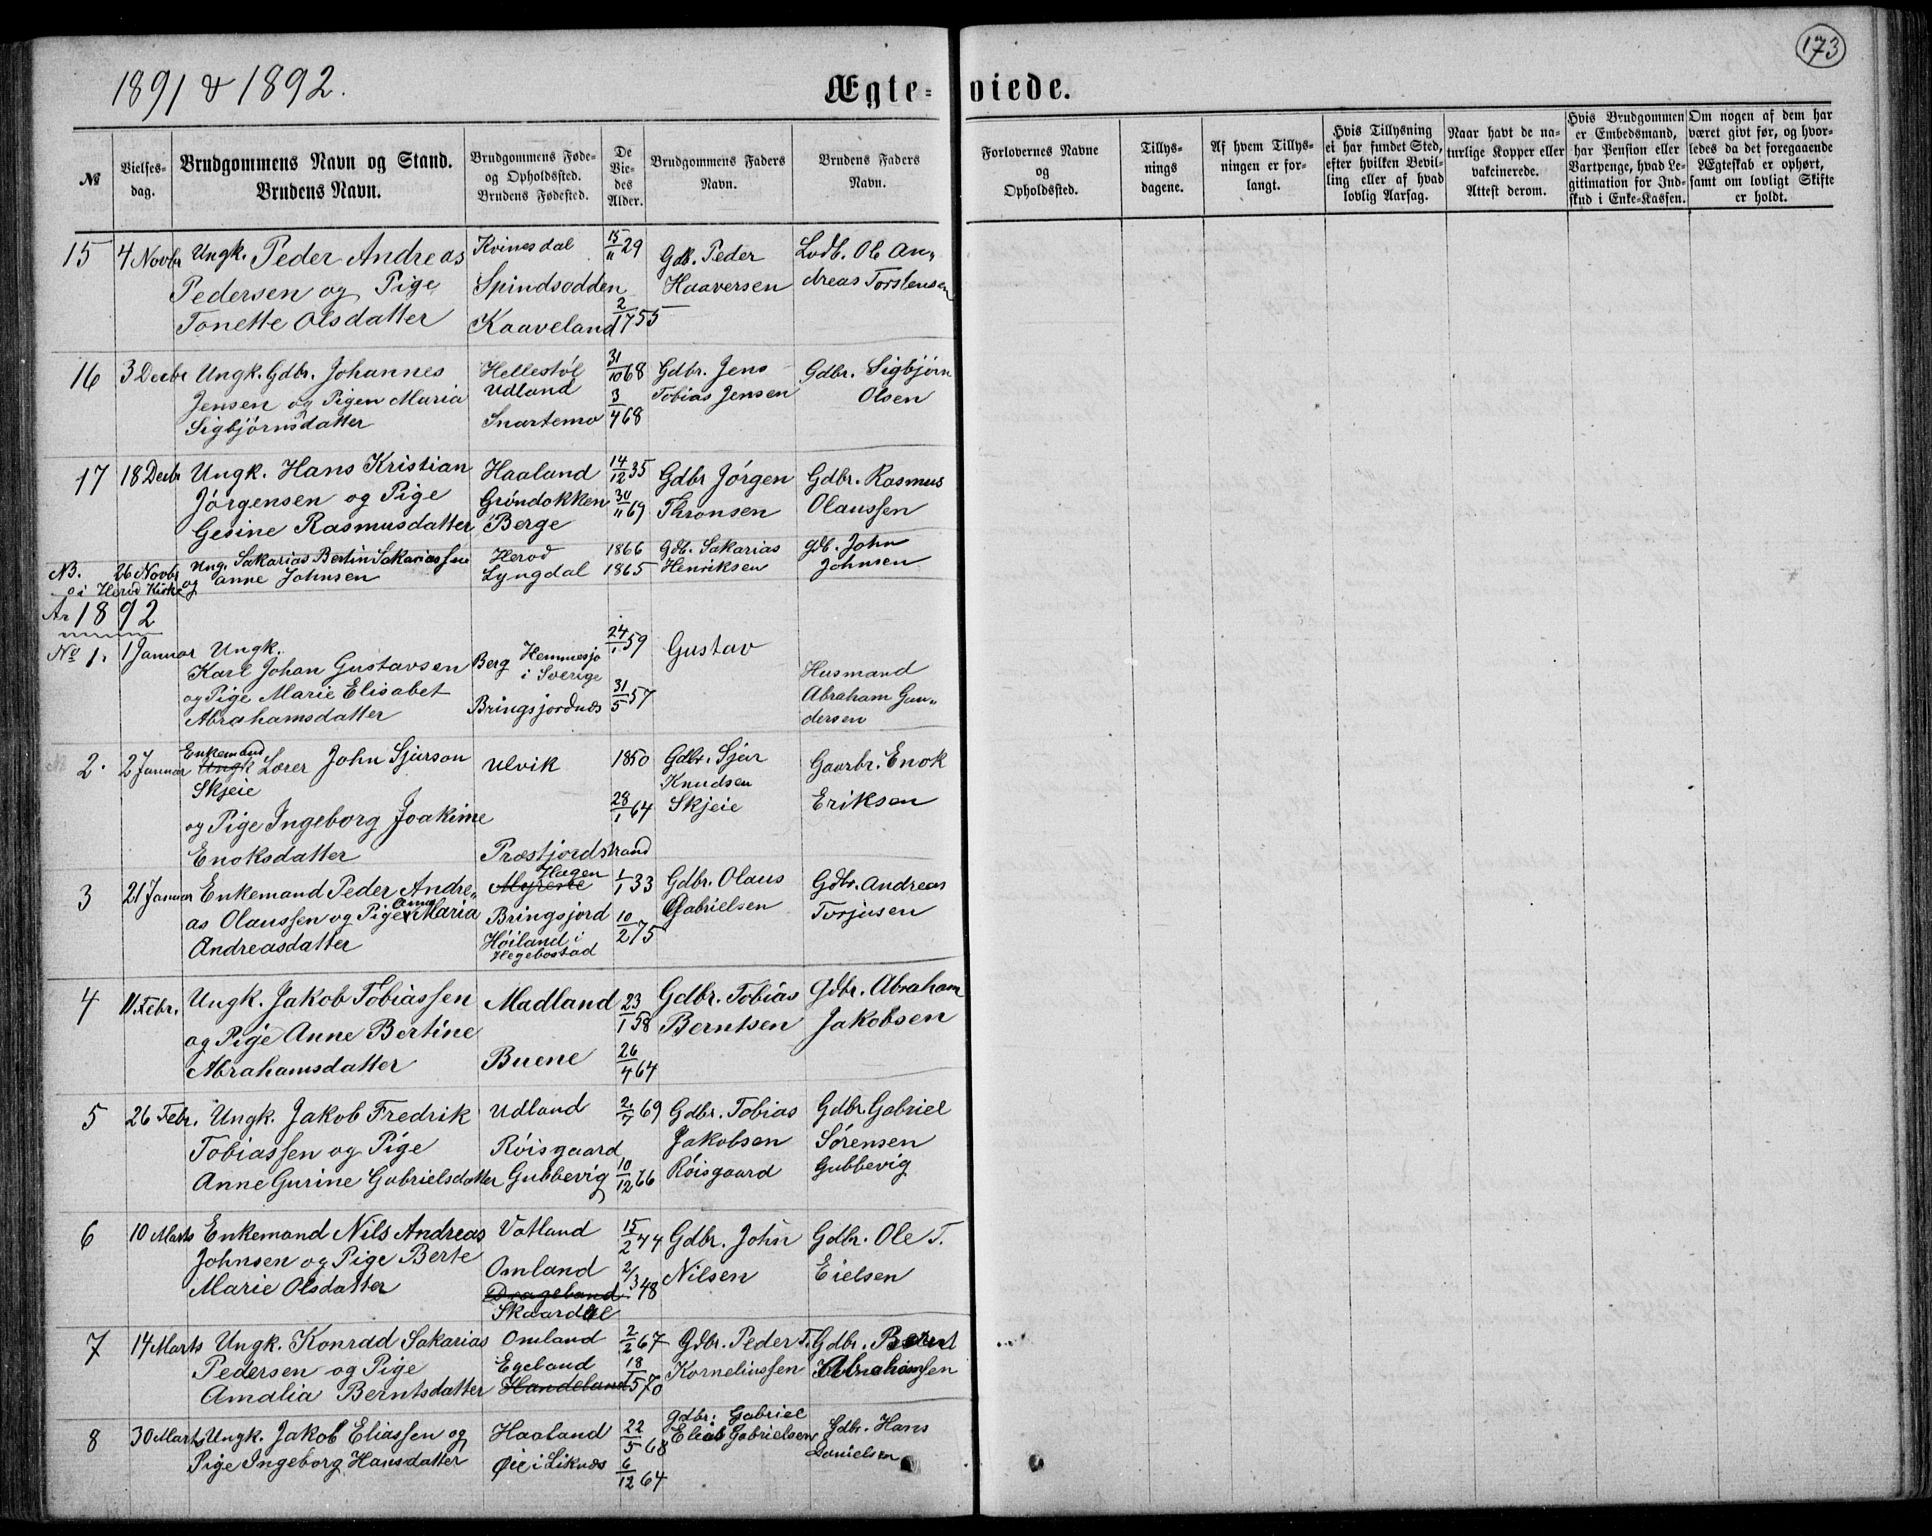 173
1891 & 1892.
Ægte-viede.
№
Vielses-
dag.
Brudgommens Navn og Stand.
Brudens Navn.
Brudgommens Føde-
og Opholdssted.
Brudens Fødested.
De
Vie-
des
Alder.
Brudgommens Faders
Navn.
Brudens Faders
Navn.
Forlovernes Navne
og
Opholdssted.
Tillys-
nings
dagene.
Af hvem Tillys-
ningen er for-
langt.
Hvis Tillysning
ei har fundet Sted,
efter hvilken Bevil-
ling eller af hvad
lovlig Aarsag.
Naar havt de na-
turlige Kopper eller
vakcinerede.
Attest derom.
Hvis Brudgommen
er Embedsmand,
har Pension eller
Vartpenge, hvad Le-
gitimation for Ind-
skud i Enke-Kassen.
Om nogen af dem har
været givt før, og hvor-
ledes da det foregaaende
Ægteskab er ophørt,
samt om lovligt Skifte
er holdt.
15 4 Novbr Ungk. Peder Andreas Kvinesdal 15/11 29 Gdb. Peder Lodb. Ol An-
Pedersen og Pige Spindsodden Haaversen dreas Torstensen
Tonette Olsdatter Kaaveland 2/17 55
16 3 Decbr Ungk. Gdbr. Johannes Hellestöl 31/10 68 Gdbr. Jens Gdbr. Sigbjörn
Jensen og Pigen Maria Udland 3/4 68 Tobias Jensen Olsen
Sigbjörnsdatter Snartemo
17 18 Decbr Ungk. Hans Kristian Haaland 14/12 35 Gdbr Jörgen Gdbr. Rasmus
Jörgensen og Pige Gröndokken 30/11 69 Thronsen Olaussen
Gesine Rasmusdatter Berge
NB. 26 Novbr Ung. Sakarias Bertin Sakariassen Herod 1866 Gdb. Sakarias Gdb. John
i Herod Kirke og Anne Johnsen Lyngdal 1865 Henriksen Johnsen
Ar 1892
No 1. 1 Januar Ungk. 24/1 59 Gustav
Karl Johan Gustavsen Berg Hemmesjo
i Sverige Husmand
og Pige Marie Elisabet 31/5 57 Abraham Gun-
Abrahamsdatter Bringsjordnæs dersen
2. 2 Januar Enkemand
Ungk Lærer John Sjurson Ulvik 1850 Gdbr. Sjur Gaarbr. Enok
Skjeie Knudsen
og Pige Ingeborg Joakime 28/1 64 Skjeie Eriksen
Enoksdatter Præstjordstrand
3 21 Januar Enkemand Peder Andre- Myrene Hagen 1/1 33 Gdbr. Olaus Gdbr. Andreas
as Olaussen og Pige Anna Maria Bringsjord 10/2 75 Gabrielsen Torjusen
Andreasdatter Höiland i
Hegebostad
4 11 Febr. Ungk. Jakob Tobiassen Madland 23/1 58 Gdbr. Tobias Gdbr. Abraham
og Pige Anne Bertine Berntsen Jakobsen
Abrahamsdatter Buene 26/4 64
5 26 Febr. Ungk. Jakob Fredrik Udland 2/7 69 Gdbr. Tobias Gdbr. Gabriel
Tobiassen og Pige Röisgaard Jakobsen Sörensen
Anne Gurine Gabrielsdatter Gubbevig 10/12 66 Röisgaard Gubbevig
6 10 Marts Enkemand Nils Andreas Vatland 15/2 44 Gdbr. John Gdbr. Ole T.
Johnsen og Pige Berte Omland 2/3 48 Nilsen Eielsen
Marie Olsdatter Drageland
Skaardal
7 14 Marts Ungk. Konrad Sakarias Omland 2/2 67 Gdbr. Peder T. Gdbr. Bernt
Pedersen og Pige Egeland 18/5 70 Korneliussen Abrahamsen
Amalia Berntsdatter Handeland
8 30 Marts Ungk. Jakob Eliassen og Haaland 22/5 68 Gdbr: Gabriel
Elias Gabrielsen Gdbr. Hans
Pige Ingeborg Hansdatter Øie i Liknæs 6/12 64 Danielsen